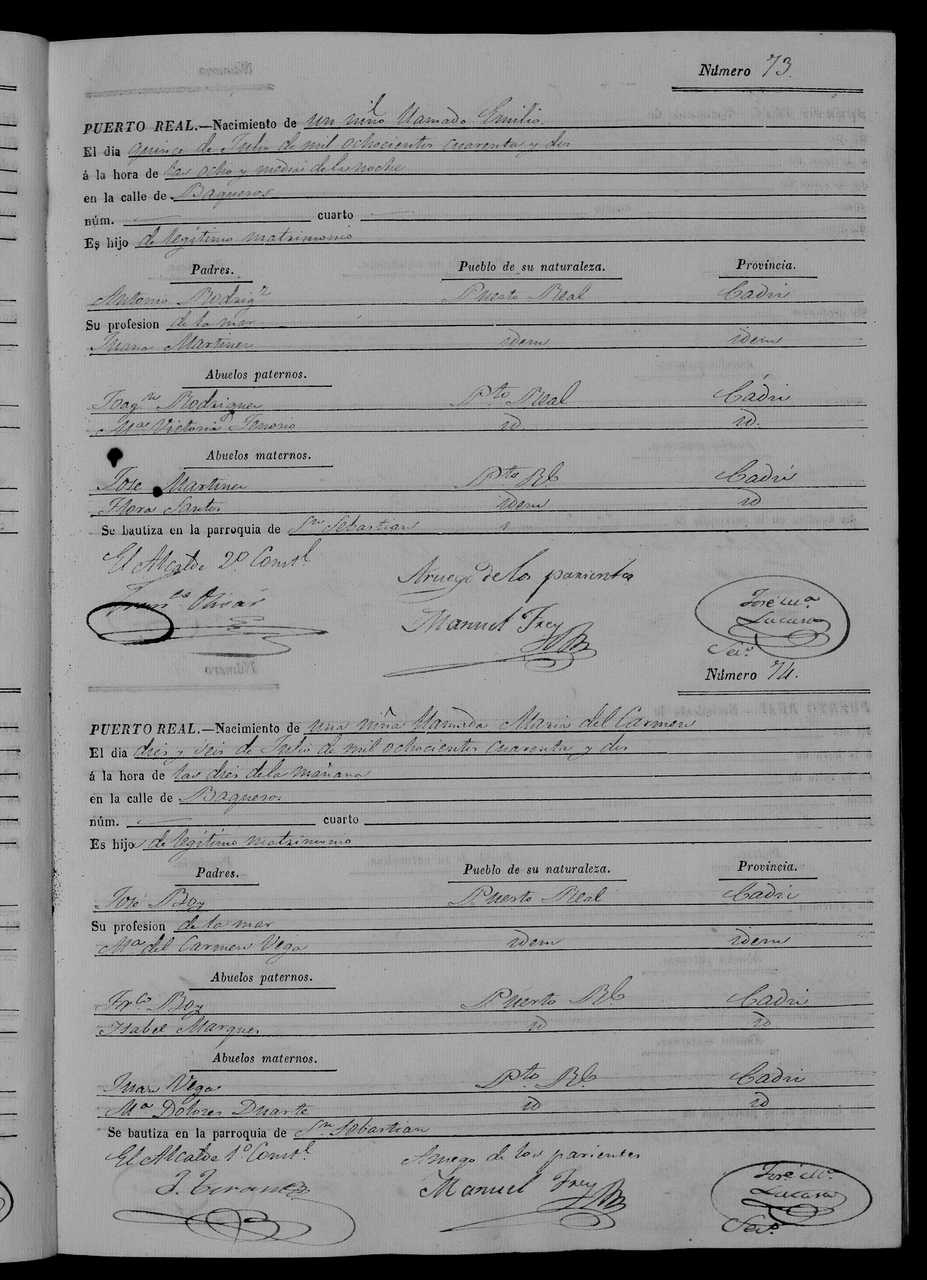 Número 73.
PUERTO REAL.—Nacimiento de un niño llamado Emilio
El dia quince de Julio de mil ochocientos cuarenta y dos
á la hora de las ocho y media de la noche
en la calle de Baqueros
núm. cuarto
Es hijo de legítimo matrimonio
Padres. Pueblo de su naturaleza. Provincia.
Antonio Rodrigz Puerto Real Cadiz
Su profesion de la mar
Juana Martinez idem idem
Abuelos paternos.
Joaqn Rodriguez Pto Real Cádiz
Ma Victoria Tenorio id. id.
Abuelos maternos.
Jose Martinez Pto Rl Cadiz
Flora Santos idem id
Se bautiza en la parroquia de Sn Sebastian
El Alcalde 2o Constl
Aruego de los parientes
Franco Olivar
Manuel Frey
José Ma Lucaso
Seco
Número 74.
PUERTO REAL.—Nacimiento de una niña llamada Maria del Carmen
El dia dies y seis de Julio de mil ochocientos cuarenta y dos
á la hora de las dies de la mañana
en la calle de Baqueros
núm. cuarto
Es hijo de legítimo matrimonio
Padres. Pueblo de su naturaleza. Provincia.
José Boy Puerto Real Cadiz
Su profesion de la mar
Ma del Carmen Vega idem idem
Abuelos paternos.
Frco Boy Puerto Rl Cadiz
Isabel Marques id id
Abuelos maternos.
Juan Vega Pto Rl Cádiz
Ma Dolores Duarte id id
Se bautiza en la parroquia de Sn Sebastian
El Alcalde 1o Constl
Aruego de los parientes
Manuel Frey
José Ma Lucaso
Seco